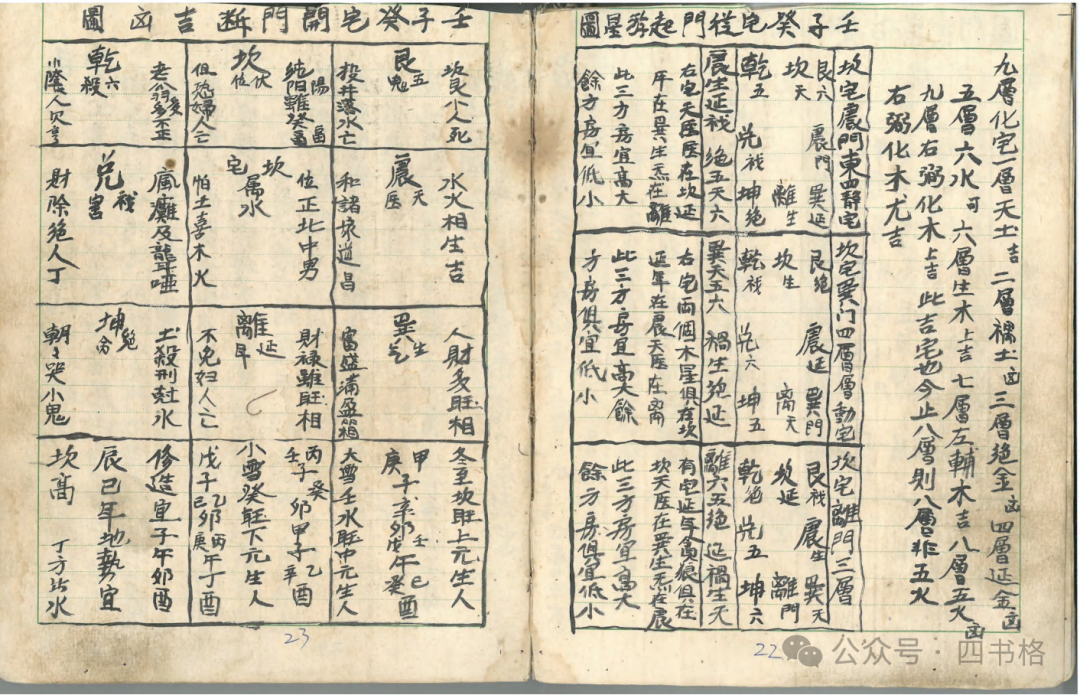 九層化宅一層天土吉 二層禍土凶 三層絕金凶 四層延金凶
五層六水可 六層生木上吉 七層左輔木吉 八層五火凶
九層右弼化木上吉 此吉宅也今止八層則八層非五火
右弼化木尤吉
壬子癸宅從門起遊星圖
坎宅震門東四靜宅
艮六 震門 巽延
坎天 離生
乾五 兌禍 坤絕
震生延禍 絕五天六
右宅天医在坎延
年在巽生炁在離
此三方房宜高大
餘方房宜低小
坎宅巽门四層層動宅
艮絕 震延 巽門
坎生 離天
乾禍 兌六 坤五
巽天五六 禍生絕延
右宅兩個木星俱在坎
延年在震天医在离
此三方房宜高大餘
方房俱宜低小
坎宅離門三層
艮禍 震生 巽天
坎延 離門
乾絕 兌五 坤六
離六五絕 延禍生天
右宅延年貪痕俱在
坎天医在巽生炁在震
此三方房宜高大
餘方房俱宜低小
22
公众号·四书格
壬子癸宅開門断吉凶圖
坎艮少人死
艮五鬼
投井落水亡
純陽雖發畜
坎伏位
但恐婦人亡
老翁多歪
乾六殺
陰人灾害
水火相生吉
震天医
和諸泉道昌
位正北中男
坎宅属水
怕土喜木火
瘋癱及聾啞
兌禍害
財除絕人丁
人財多旺相
巽生炁
富盛滿盈箱
財禄雖旺相
離延年
不免妇人亡
土殺刑尅水
坤絕命
朝々哭小鬼
冬至坎旺上元生人
甲己
庚子辛卯戊壬午癸酉
大雪壬水旺中元生人
丙癸乙
壬子卯甲子辛酉
小雪癸旺下元生人
乙丙
戊子己卯庚午丁酉
修造宜子午卯酉
辰巳年地勢宜
坎高 丁方出水
23